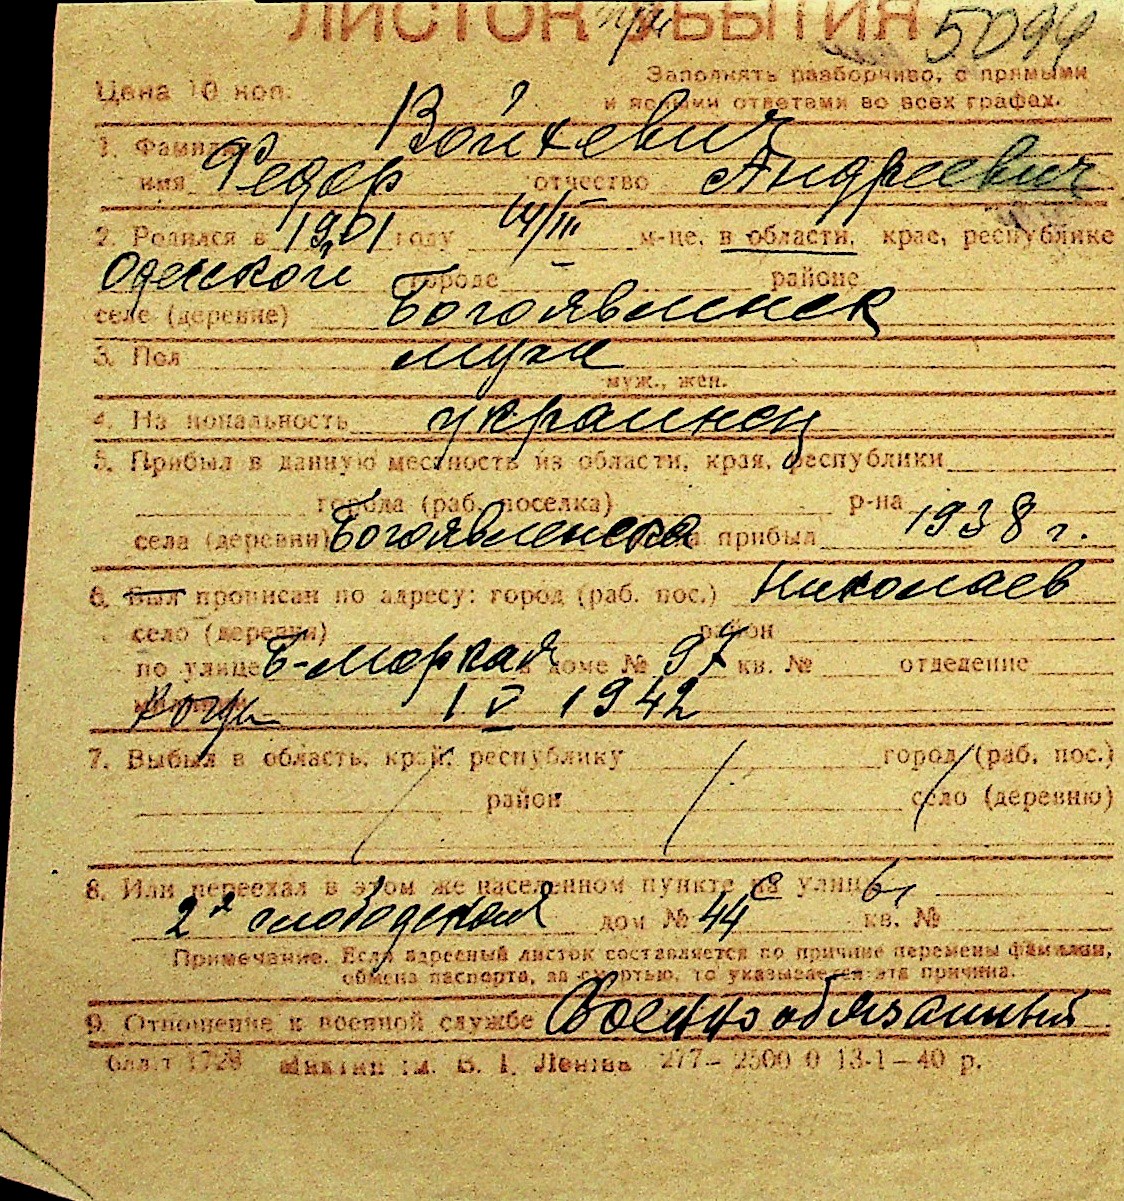 ЛИСТОК УБЫТИЯ
при
5094
Цена 10 коп.
Заполнять разборчиво, с прямыми
и ясными ответами во всех графах.
1. Фамилия Войткевич
имя Федор отчество Андреевич
2. Родился в 1901 году 14/III м-це, в области, крае, республике
Одесской городе районе
селе (деревне) Богоявленск
3. Пол муж
муж., жен.
4. Национальность украинец
5. Прибыл в данную местность из области, края, республики
города (раб. поселка) р-на
села (деревни) Богоявленска прибыл 1938 г.
6. Был прописан по адресу: город (раб. пос.) Николаев
село (деревня) район
по улице Б-Морская доме № 97 кв. № отделение
1 V 1942
7. Выбыл в область, край, республику город (раб. пос.)
район село (деревню)
8. Или переехал в этом же населенном пункте на улицу
2я слободская дом № 44 кв. №
Примечание. Если адресный листок составляется по причине перемены фамилии,
обмена паспорта, за смертью, то указывается эта причина.
9. Отношение к военной службе Военнообязанный
1728 В. І. Леніна 277 – 2500 0 13-1 – 40 р.